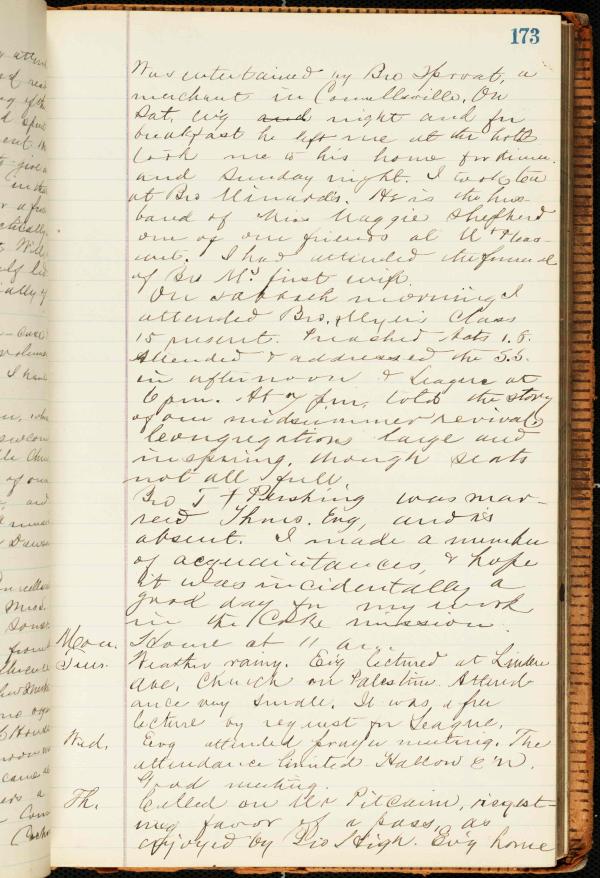 173
Was entertained by Bro Sproat, a
merchant in Connellsville. On
Sat. ev'g and night and for
breakfast he left me at the hotel
took me to his home for dinner
and Sunday night. I took tea
at Bro Minard's. He is the hus-
band of Miss Maggie Shepherd
one of our friends at Mt Pleas-
ant. I had attended the funeral
of Bro M's first wife.
On Sabbath morning I
attended Bro. Myer's Class
15 present. Preached Acts 1.8.
Attended & addressed the S.S.
in afternoon & League at
6 pm. At 7 pm. told the story
of our midsummer revivals
Congregations large and
inspiring, though seats
not all full.
Bro J Pershing was mar-
ried Thurs. Evg, and is
absent. I made a number
of acquaintances, & hope
it was incidentally a
good day for my work
in the Coke mission.
Mon. Home at 11 a.m.
Tues. Weather rainy. Ev'g lectured at Linden
Ave. Church on Palestine. Attend-
ance very small. It was a free
lecture by request for League.
Wed. Evg attended prayer meeting. The
attendance limited - Hallow e'n.
Good meeting.
Th. Called on Mr Pitcairn, request-
ing favor of a pass, as
enjoyed by Bro High. Ev'g home